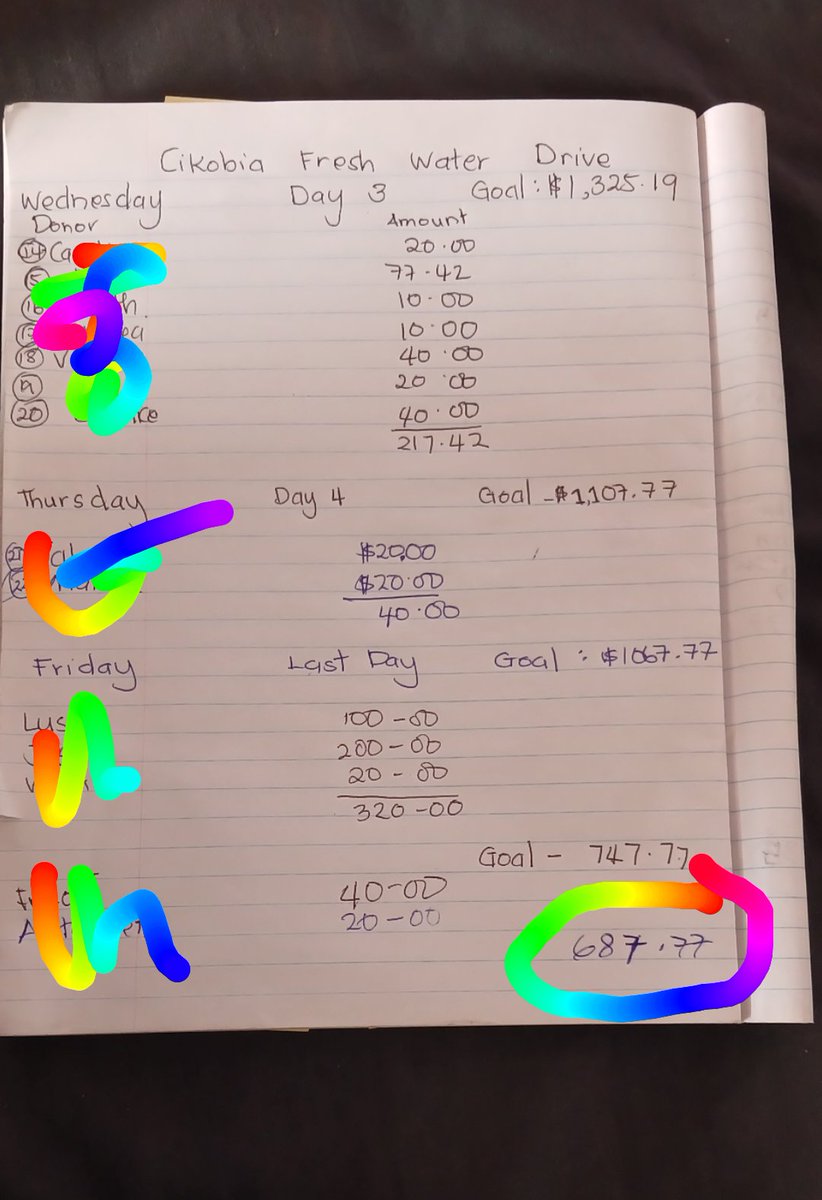 Cikobia Fresh Water Drive
Wednesday Day 3 Goal : $1,325.19
Donor Amount
14 20.00
77.42
10.00
10.00
18 40.00
19 20.00
20 40.00
217.42
Thursday Day 4 Goal - $1,107.77
$20.00
$20.00
40.00
Friday Last Day Goal : $1067.77
100-00
200-00
20-00
320-00
Goal - 747.77
40-00
20-00
687.77